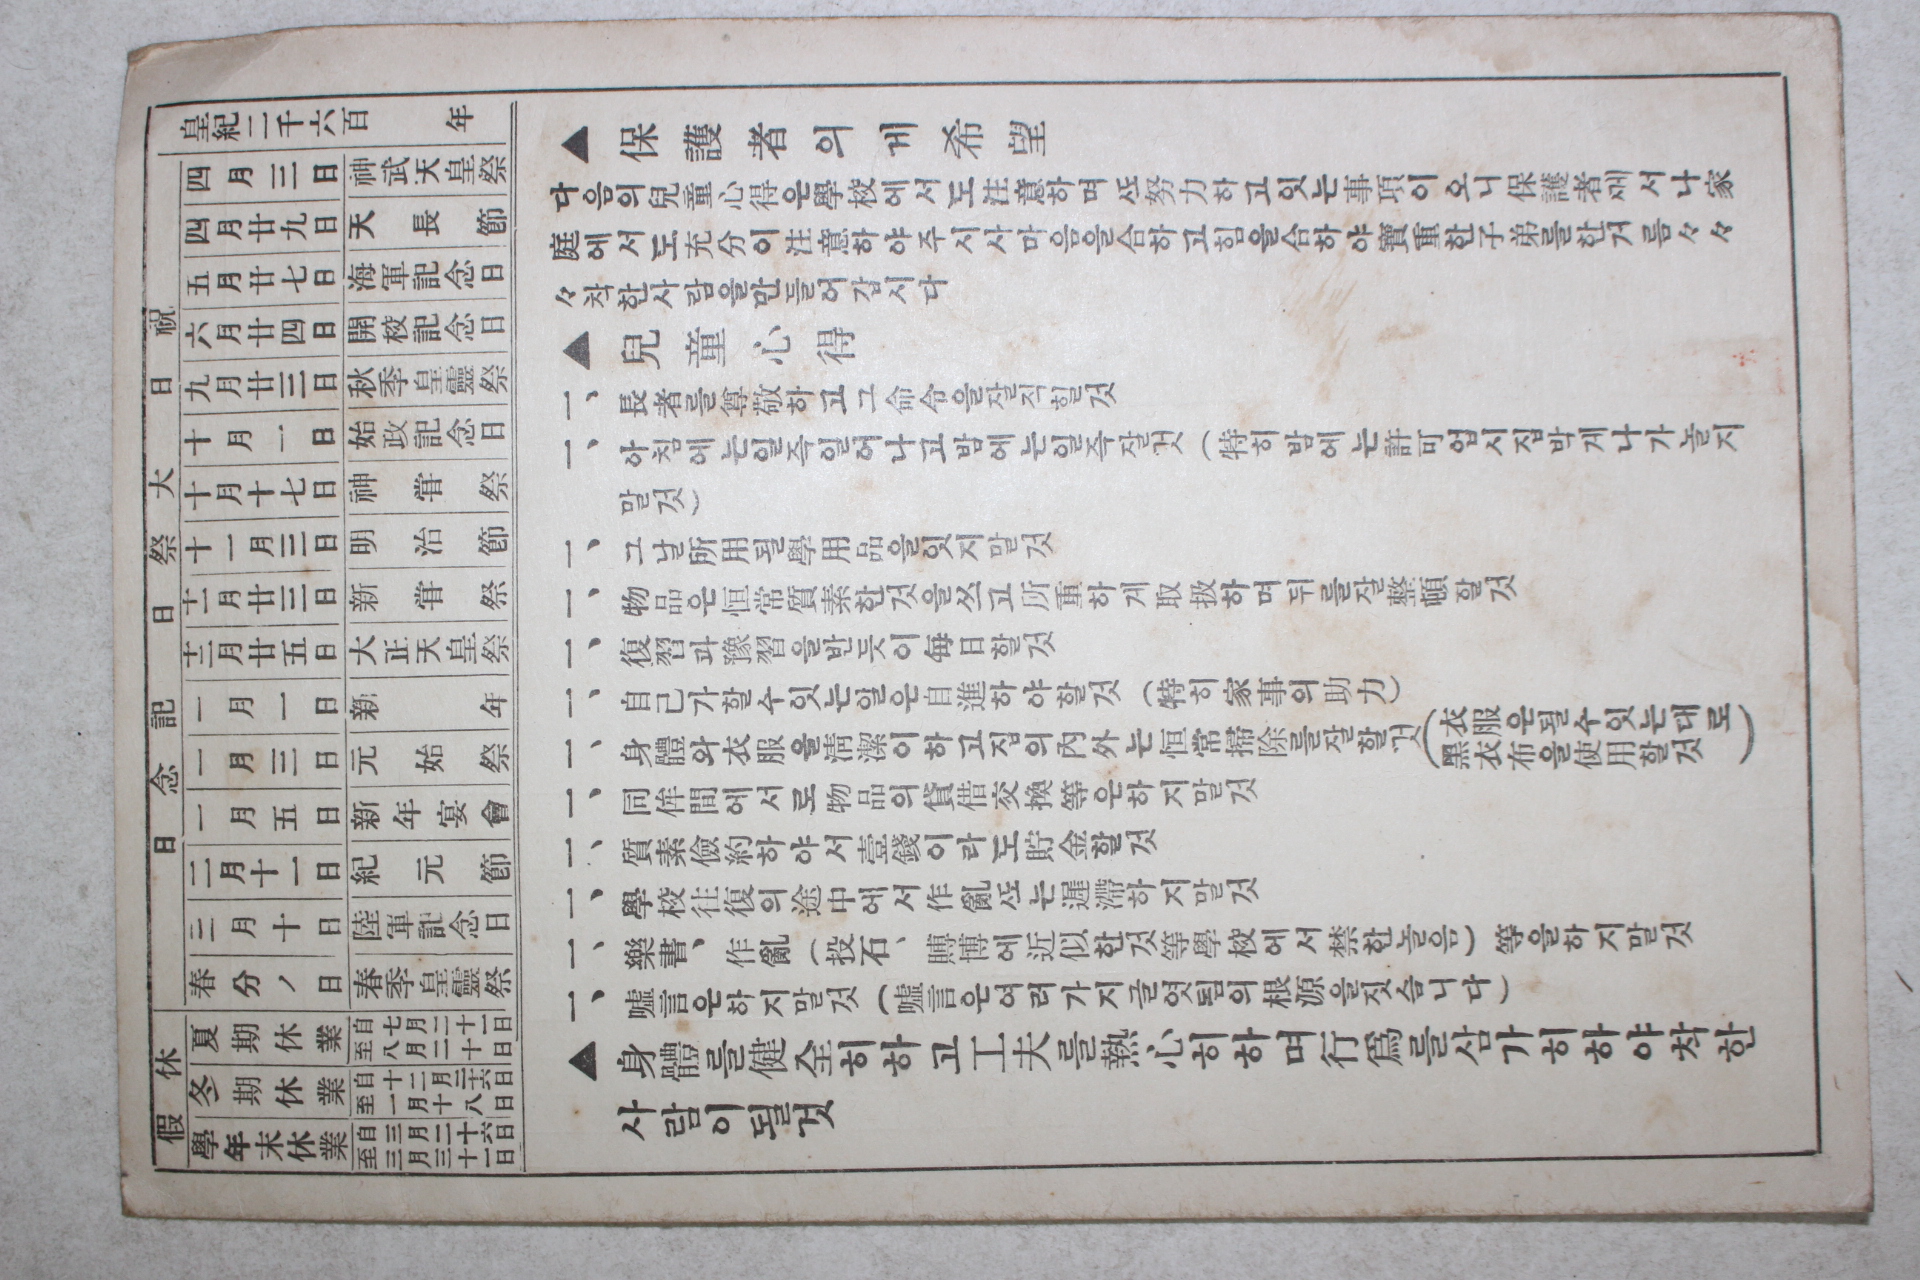 皇紀二千六百年
祝日大祭日記念日
四月三日 神武天皇祭
四月廿九日 天長節
五月廿七日 海軍記念日
六月廿四日 開校記念日
九月廿三日 秋季皇靈祭
十月一日 始政記念日
十月十七日 神甞祭
十一月三日 明治節
十一月廿三日 新甞祭
十二月廿五日 大正天皇祭
一月一日 新年
一月三日 元始祭
一月五日 新年宴會
二月十一日 紀元節
三月十日 陸軍記念日
春分ノ日 春季皇靈祭
休假
夏期休業 自七月二十一日
至八月二十日
冬期休業 自十二月二十六日
至一月十八日
學年末休業 自三月二十六日
至三月三十一日
▲保護者의게希望
다음의兒童心得은學校에서도注意하며ᄯᅩ努力하고잇는事項이오니保護者ᄭᅦ서나家
庭에서도充分이注意하야주시사마음을合하고힘을合하야寶重한子弟를한거름々々
々착한사람을만들어갑시다
▲兒童心得
一、長者를尊敬하고그命令을잘직힐것
一、아침에는일즉일어나고밤에는일즉잘것(特히밤에는許可업시집박게나가놀지
말것)
一、그날所用될學用品을잇지말것
一、物品은恒常質素한것을쓰고所重하게取扱하며뒤를잘整頓할것
一、復習과豫習을반듯이每日할것
一、自己가할수잇는일은自進하야할것(特히家事의助力)
一、身體와衣服을淸潔이하고집의內外는恒常掃除를잘할것(衣服은될수잇는대로
黑衣布을使用할것)
一、同侔間에서로物品의貸借交換等은하지말것
一、質素儉約하야서壹錢이라도貯金할것
一、學校往復의途中에서作亂ᄯᅩ는遲滯하지말것
一、樂書、作亂(投石、賭博에近似한것等學校에서禁한놀음)等을하지말것
一、噓言은하지말것(噓言은여러가지글엇됨의根源을짓슴니다)
▲身體를健全히하고工夫를熱心히하며行爲를삼가히하야착한
사람이될것